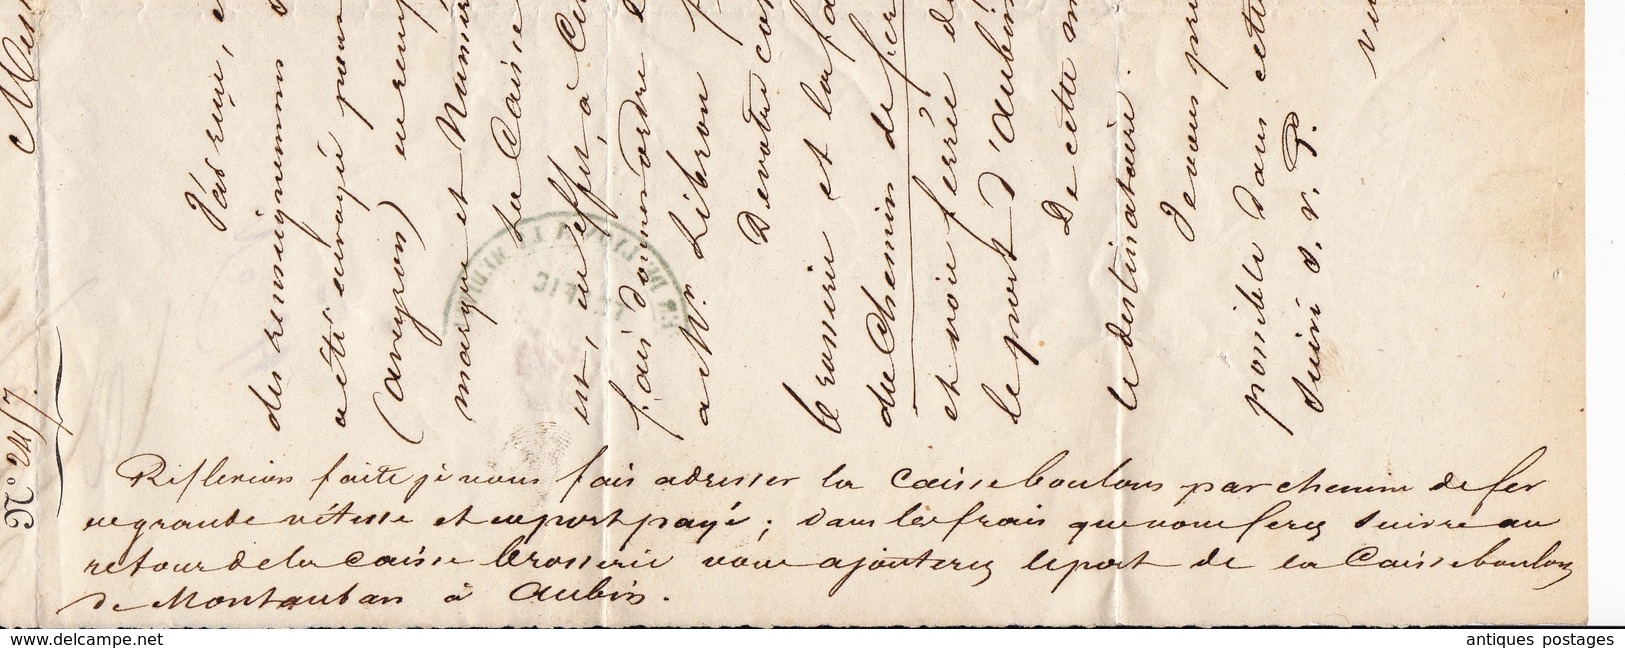 Mes
N° 2417.
J'ai reçu, 
des renseignements
a été envoyée pour
(aveyron) en remp
marque et Numéro
La Caisse
est, en effet, à Ce
fais donner ordre
a Mr. Libron
De votre co
brosserie et la fa
du Chemin de fer
et voie ferrée de
le port d'Aubin
De cette m
le destinataire.
Je vous prie
possible dans cette
suivi s. v. p.
Réflexion faite je vous fais adresser la Caisse boulons par chemin de fer
en grande vitesse et en port payé; dans les frais que vous ferez suivre au
retour de la caisse brosserie vous ajouterez le port de la Caisse boulons
de Montauban à Aubin.
antiques postages